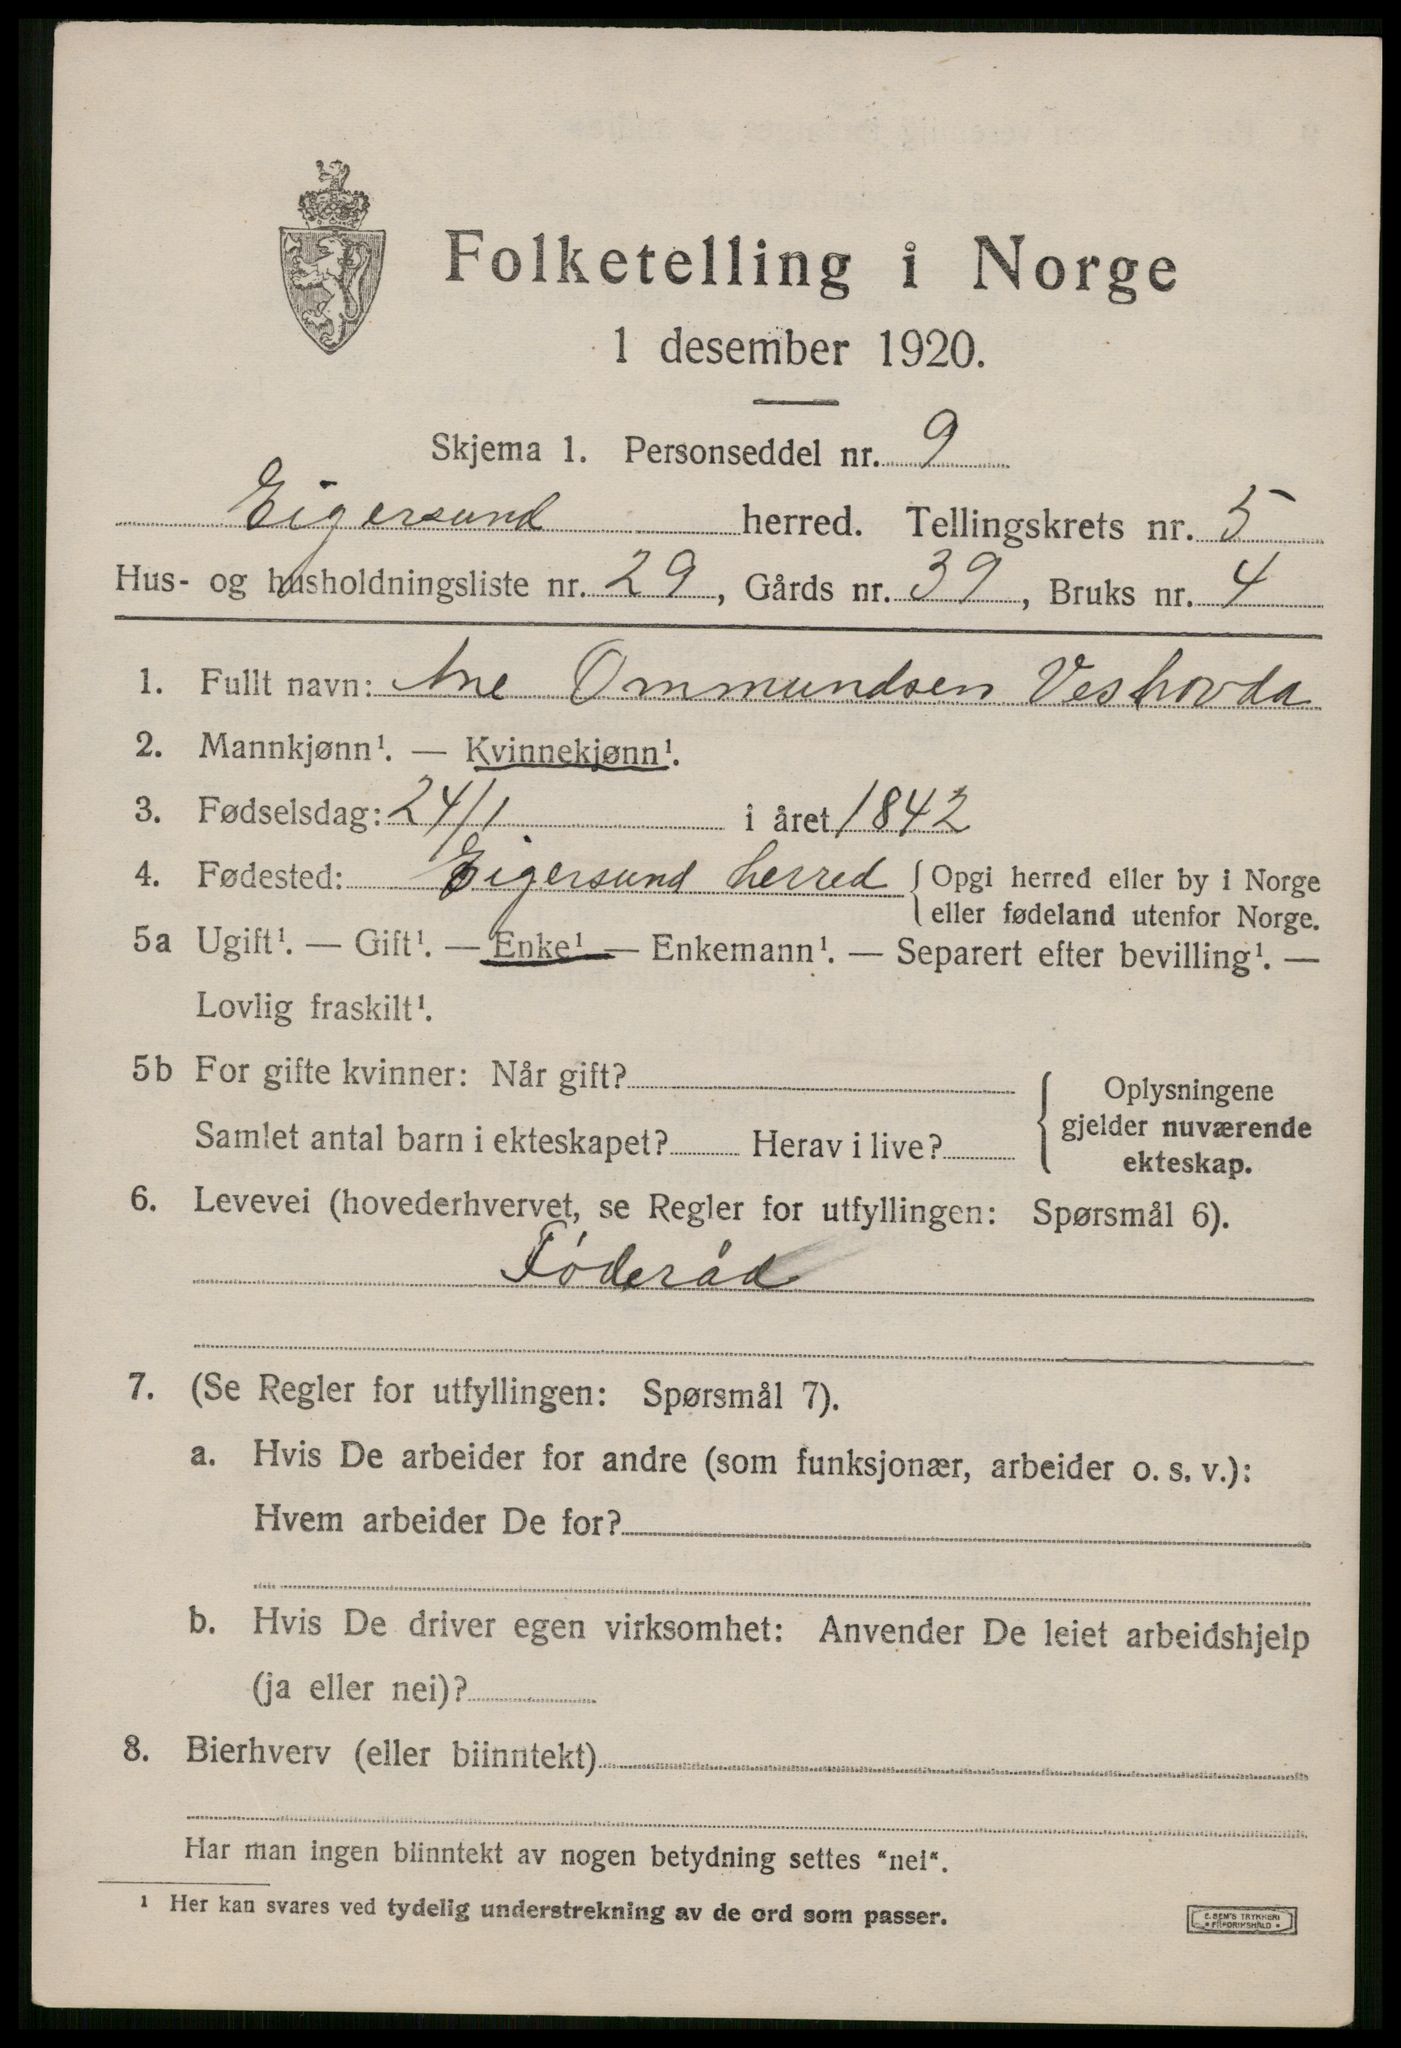 Folketelling i Norge
1 desember 1920.
Skjema 1. Personseddel nr. 9
Eigersund herred. Tellingskrets nr. 5
Hus- og husholdningsliste nr. 29, Gårds nr. 39, Bruks nr. 4
1. Fullt navn: Ane Ommundsen Veshovda
2. Mannkjønn¹. — Kvinnekjønn¹.
3. Fødselsdag: 24/1 i året 1842
4. Fødested: Eigersund herred { Opgi herred eller by i Norge
eller fødeland utenfor Norge.
5a Ugift¹. — Gift¹. — Enke¹ — Enkemann¹. — Separert efter bevilling¹. —
Lovlig fraskilt¹.
5b For gifte kvinner: Når gift?
Samlet antal barn i ekteskapet? Herav i live?
Oplysningene
gjelder nuværende
ekteskap.
6. Levevei (hovederhvervet, se Regler for utfyllingen: Spørsmål 6).
Føderåd
7. (Se Regler for utfyllingen: Spørsmål 7).
a. Hvis De arbeider for andre (som funksjonær, arbeider o. s. v.):
Hvem arbeider De for?
b. Hvis De driver egen virksomhet: Anvender De leiet arbeidshjelp
(ja eller nei)?
8. Bierhverv (eller biinntekt)
Har man ingen biinntekt av nogen betydning settes "nei".
¹ Her kan svares ved tydelig understrekning av de ord som passer.
E. SEM'S TRYKKERI
FREDRIKSHALD